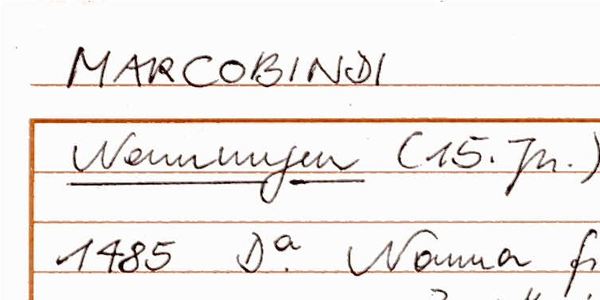 MARCOBINDI
Nennungen (15. Jh.)
1485 Dª. Nanna